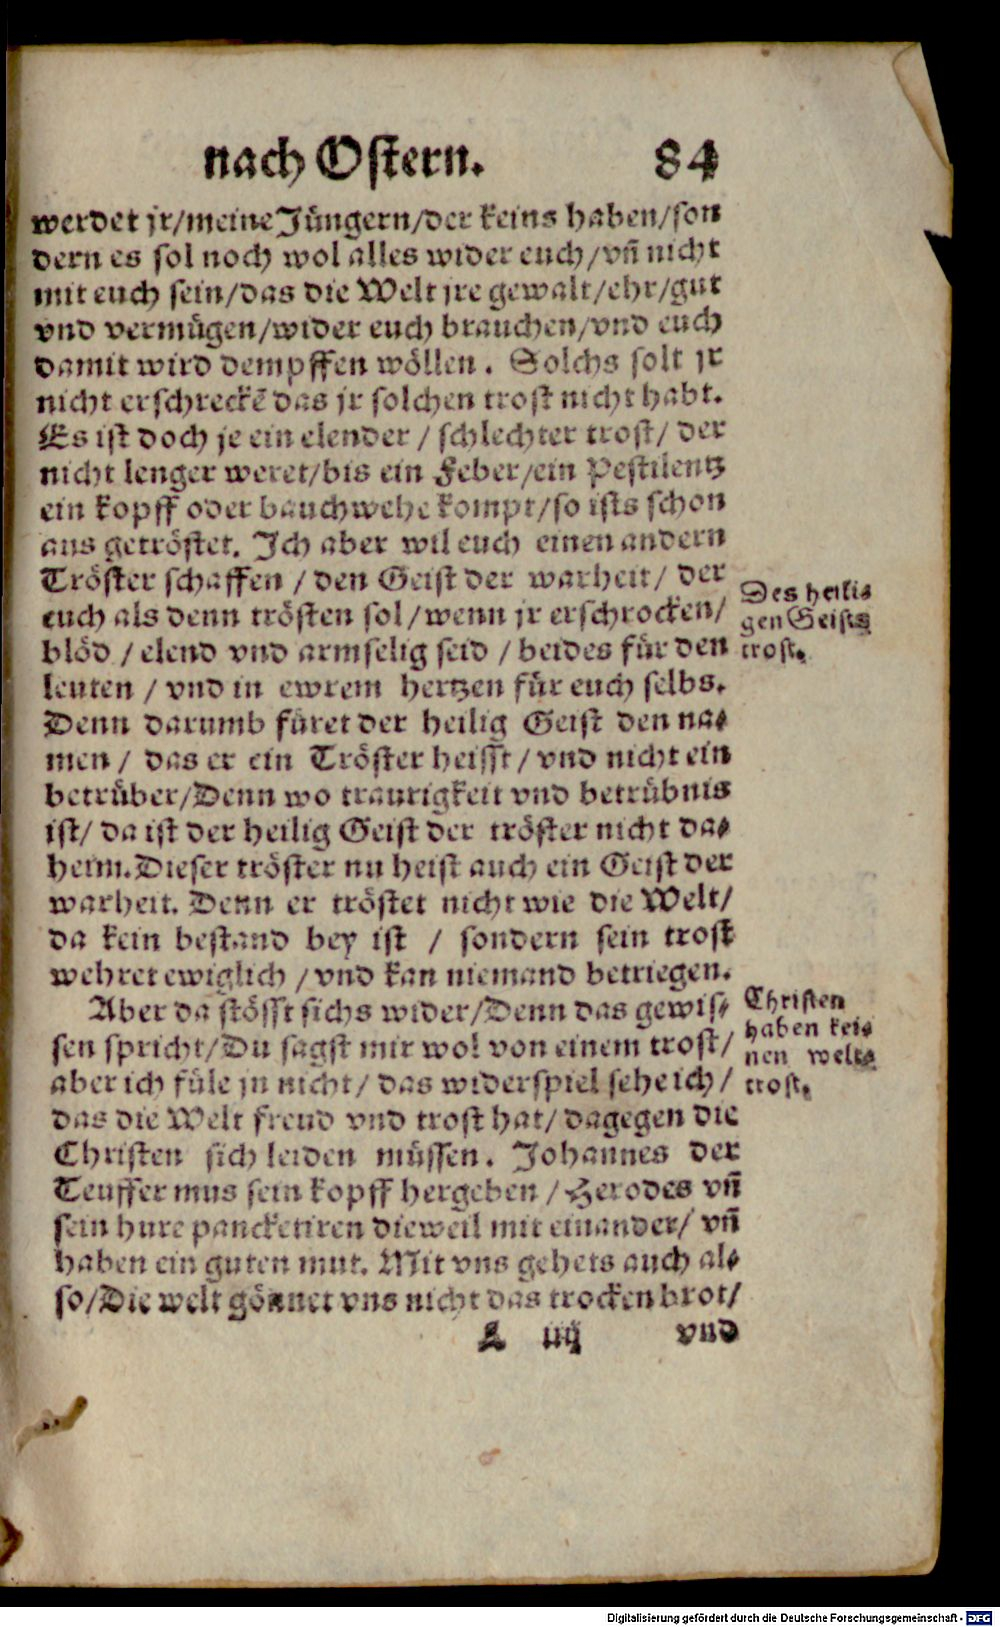 nach Ostern. 84
werdet jr/meine Jüngern/der keins haben/son
dern es sol noch wol alles wider euch/vñ nicht
mit euch sein/das die Welt jre gewalt/ehr/gut
vnd vermügen/wider euch brauchen/vnd euch
damit wird dempffen wöllen. Solchs solt jr
nicht erschreckẽ das jr solchen trost nicht habt.
Es ist doch je ein elender / schlechter trost/ der
nicht lenger weret/bis ein Feber/ein Pestilentz
ein kopff oder bauchwehe kompt/so ists schon
aus getröstet. Ich aber wil euch einen andern
Tröster schaffen / den Geist der warheit/ der
euch als denn trösten sol/wenn jr erschrocken/
blöd / elend vnd armselig seid / beides für den
leuten / vnd in ewrem hertzen für euch selbs.
Denn darumb füret der heilig Geist den na-
men / das er ein Tröster heisst/ vnd nicht ein
betrüber/Denn wo traurigkeit vnd betrübnis
ist/ da ist der heilig Geist der tröster nicht da-
heim. Dieser tröster nu heist auch ein Geist der
warheit. Denn er tröstet nicht wie die Welt/
da kein bestand bey ist / sondern sein trost
wehret ewiglich / vnd kan niemand betriegen.
Des heili-
gen Geists
trost.
Aber da stösst sichs wider/Denn das gewis-
sen spricht/Du sagst mir wol von einem trost/
aber ich füle jn nicht/ das widerspiel sehe ich/
das die Welt freud vnd trost hat/ dagegen die
Christen sich leiden müssen. Johannes der
Teuffer mus sein kopff hergeben / Herodes vñ
sein hure pancketiren dieweil mit einander/ vñ
haben ein guten mut. Mit vns gehets auch al-
so/Die welt gönnet vns nicht das trocken brot/
Christen
haben kei-
nen welt-
trost.
L iiij vnd
Digitalisierung gefördert durch die Deutsche Forschungsgemeinschaft - DFG